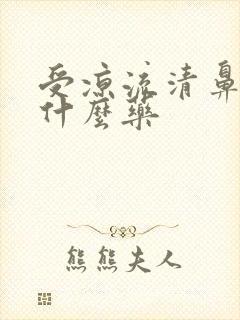 受凉流清鼻
什麼藥
熊熊夫人